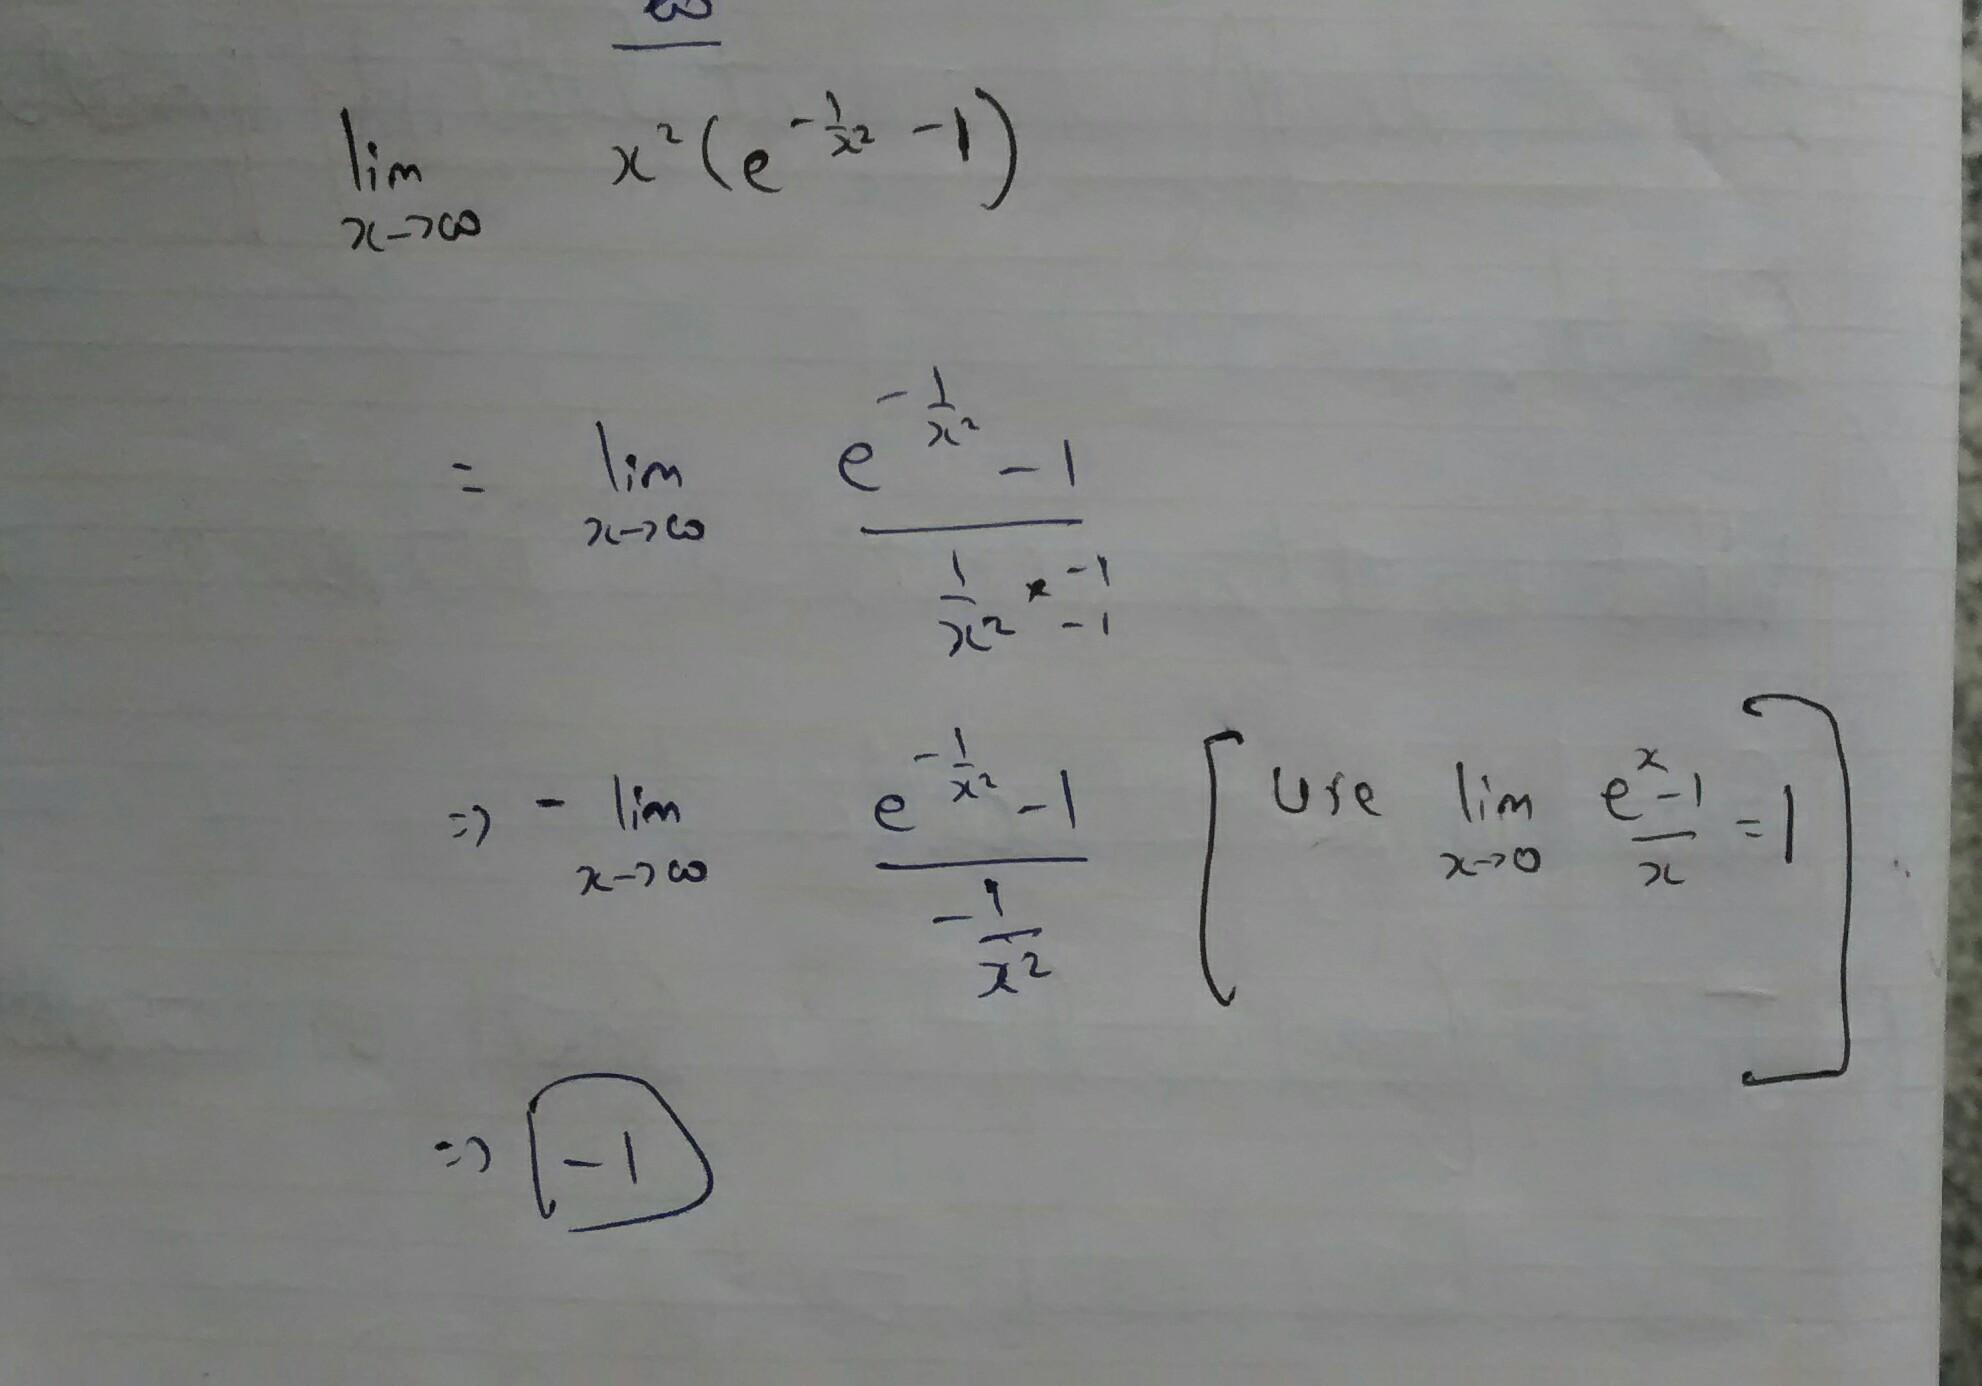 lim x→∞ x²(e^(-1/x²) -1)
= lim x→∞ (e^(-1/x²) -1)/(1/x² * -1/-1)
=> - lim x→∞ (e^(-1/x²) -1)/(-1/x²) [Use lim x→0 (e^x -1)/x = 1]
=> -1